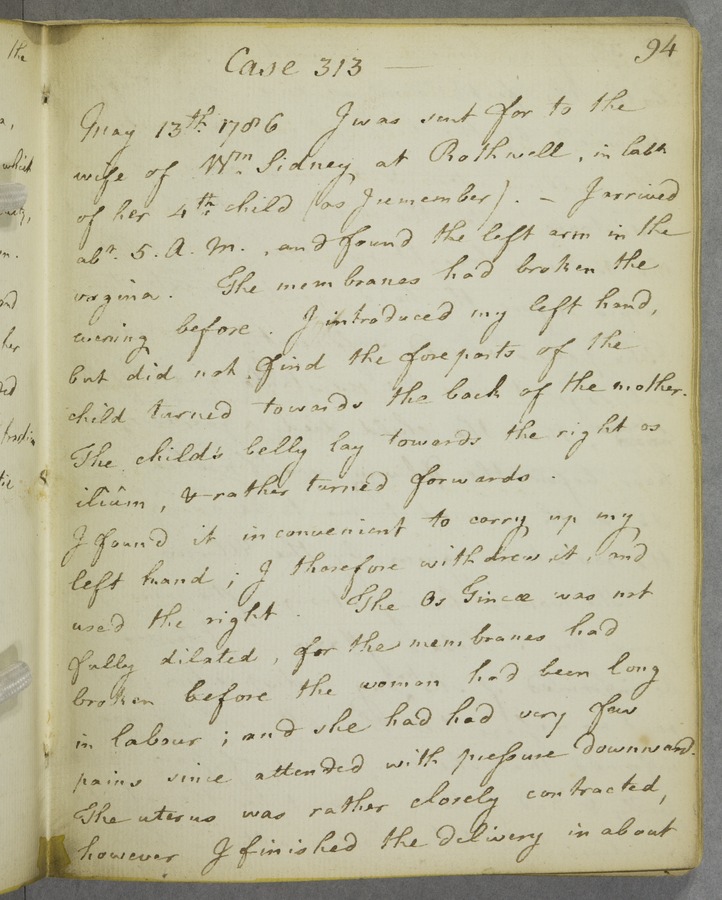 94
Case 313 —
May 13th. 1786 I was sent for to the
wife of Wm. Sidney at Rothwell, in labr
of her 4th. child (as I remember). — I arrived
abt. 5. A. M., and found the left arm in the
vagina. The membranes had broken the
evening before. I introduced my left hand,
but did not find the foreparts of the
child turned towards the back of the mother.
The child's belly lay towards the right os
ilium, & rather turned forwards.
I found it inconvenient to carry up my
left hand; I therefore withdrew it, and
used the right. The Os Tincæ was not
fully dilated, for the membranes had
broken before the woman had been long
in labour; and she had had very few
pains since attended with pressure downward.
The uterus was rather closely contracted,
however I finished the delivery in about